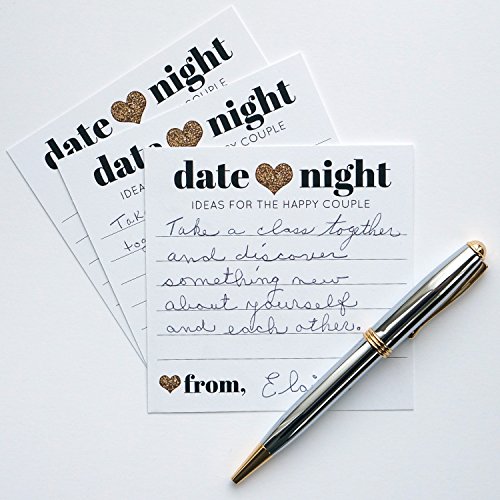 date night
COUPLE
date night
COUPLE
Take
tog
date night
IDEAS FOR THE HAPPY COUPLE
Take a class together
and discover
something new
about yourself
and each other.
from,